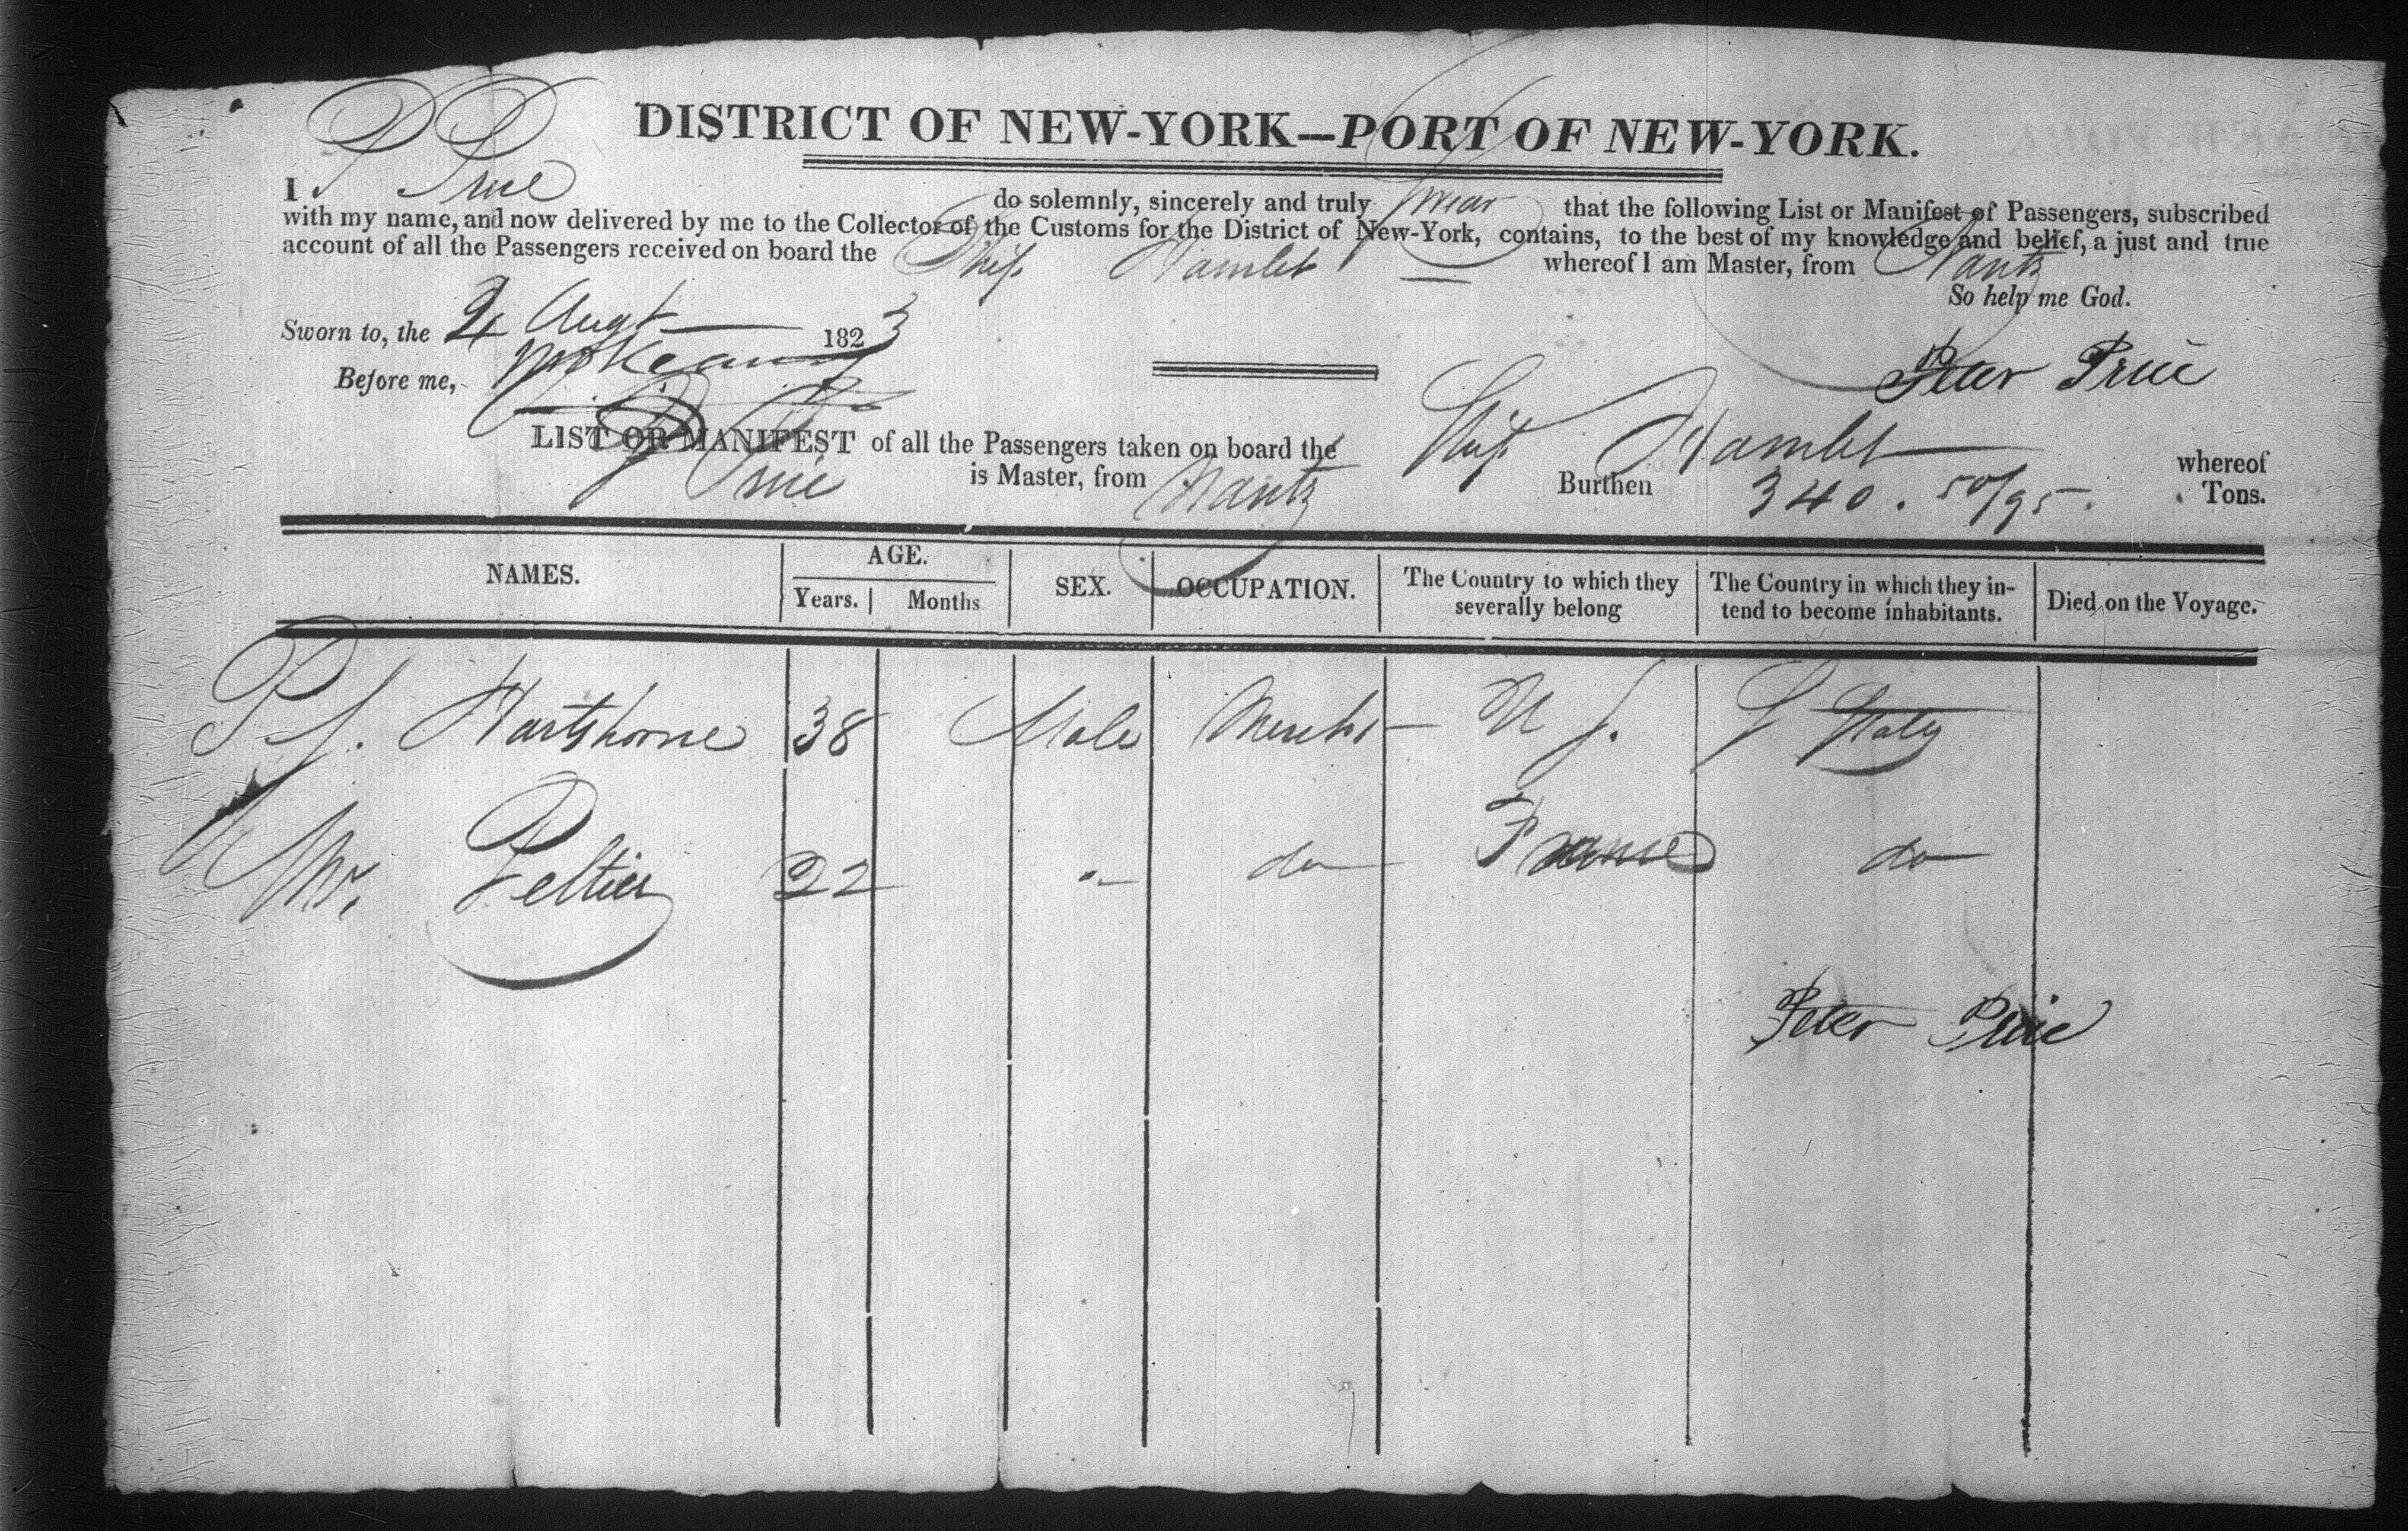 DISTRICT OF NEW-YORK—PORT OF NEW-YORK.
I P Price do solemnly, sincerely and truly swear that the following List or Manifest of Passengers, subscribed
with my name, and now delivered by me to the Collector of the Customs for the District of New-York, contains, to the best of my knowledge and belief, a just and true
account of all the Passengers received on board the Ship Hamlet whereof I am Master, from Nantz
So help me God.
Sworn to, the Augt 1823
Before me,
Peter Price
LIST OR MANIFEST of all the Passengers taken on board the Ship Hamlet whereof
P Price is Master, from Nantz Burthen 340. 50/95. Tons.
NAMES. AGE. Years. Months SEX. OCCUPATION. The Country to which they severally belong The Country in which they intend to become inhabitants. Died on the Voyage.
P J. Hartshorne 38 Male Mercht U S. U States
Mr. Peltier 22 " do France do
Peter Price